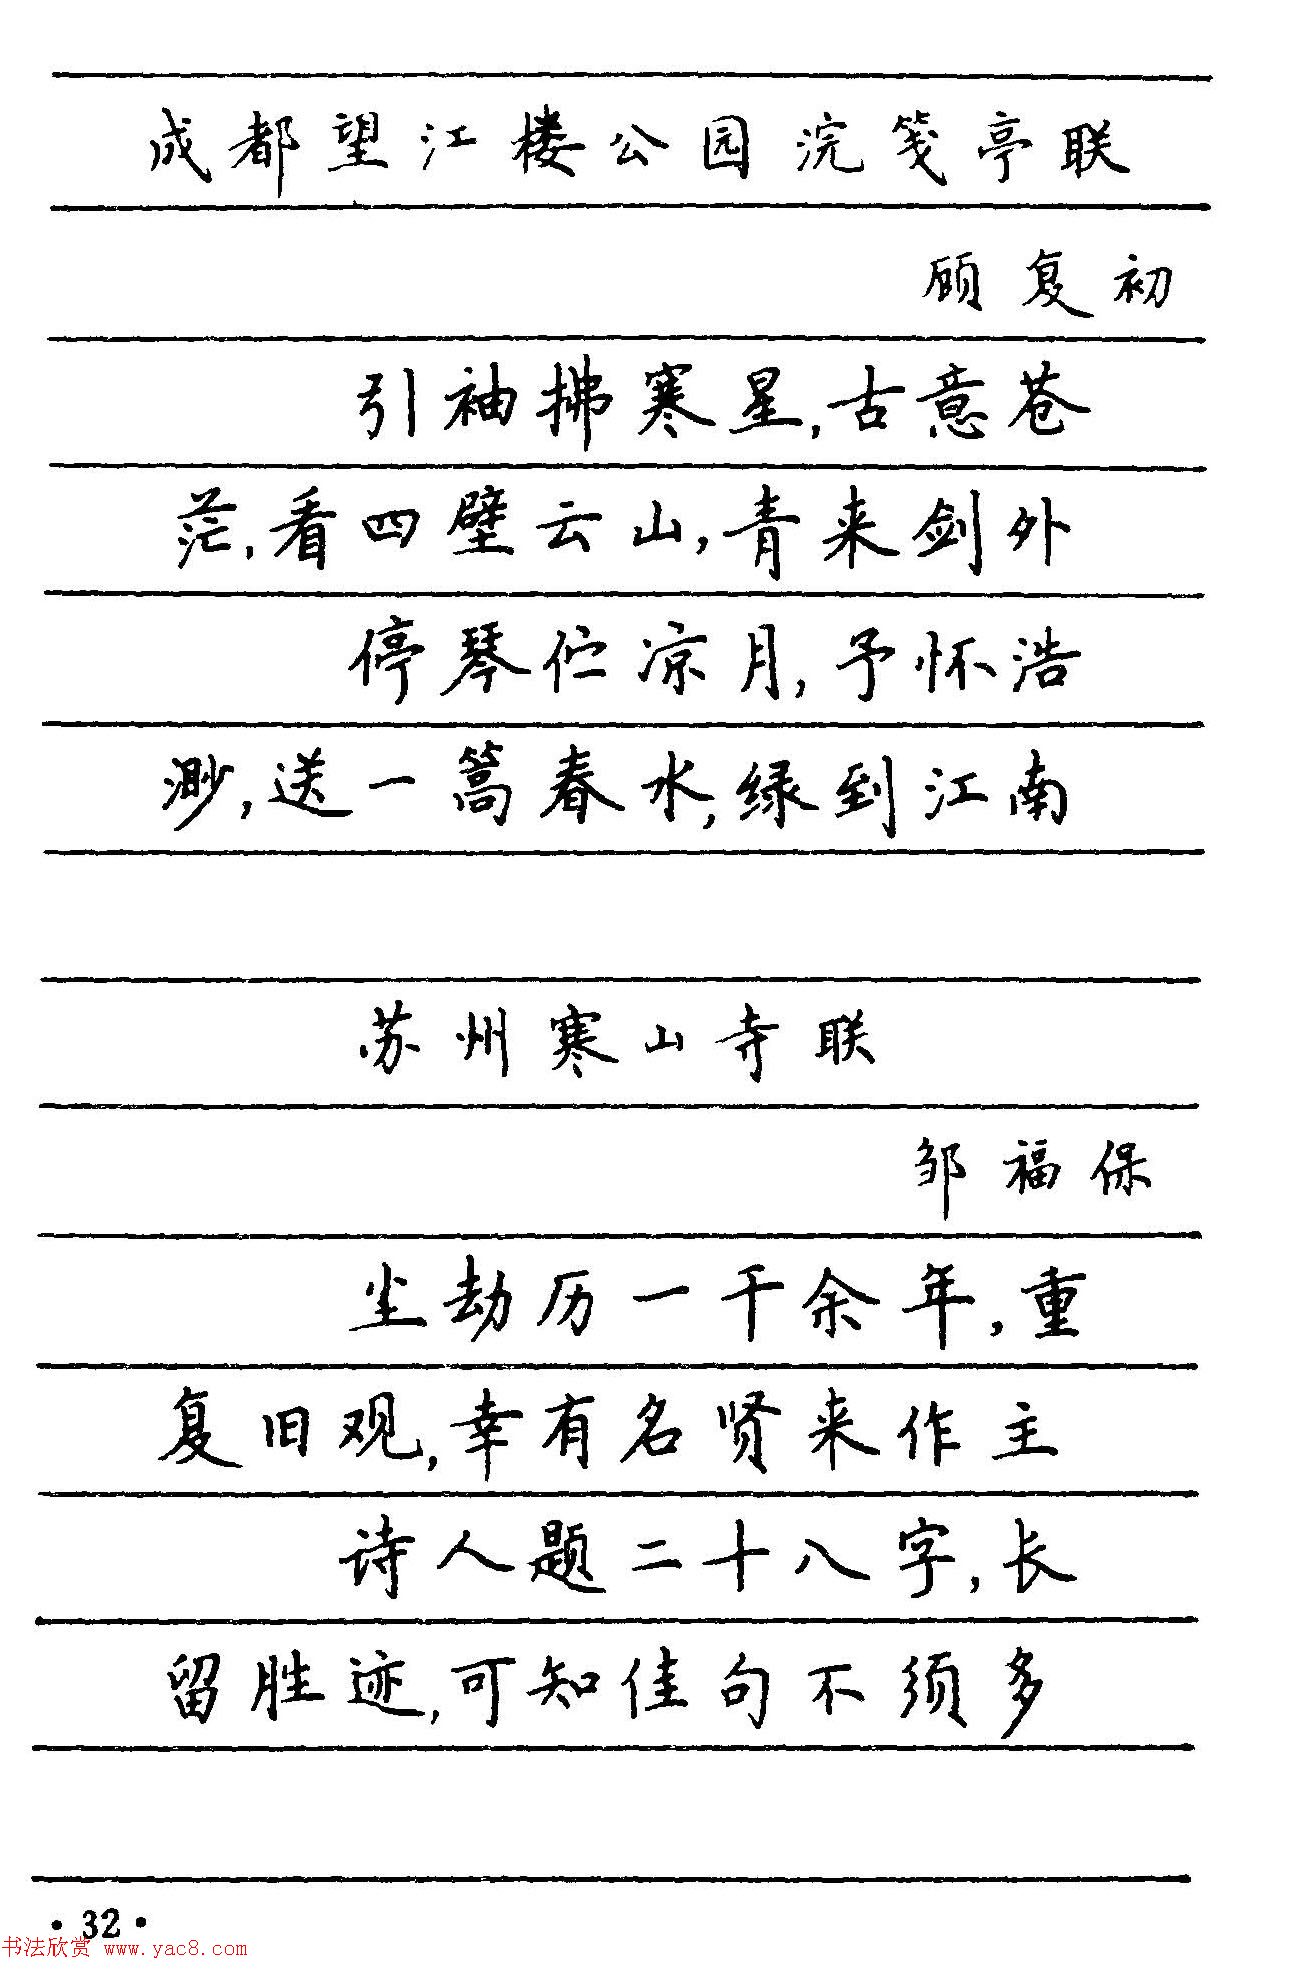 成都望江楼公园浣笺亭联
顾复初
引袖拂寒星,古意苍
茫,看四壁云山,青来剑外
停琴伫凉月,予怀浩
渺,送一篙春水,绿到江南
苏州寒山寺联
邹福保
尘劫历一千余年,重
复旧观,幸有名贤来作主
诗人题二十八字,长
留胜迹,可知佳句不须多
·32·
书法欣赏 www.yac8.com